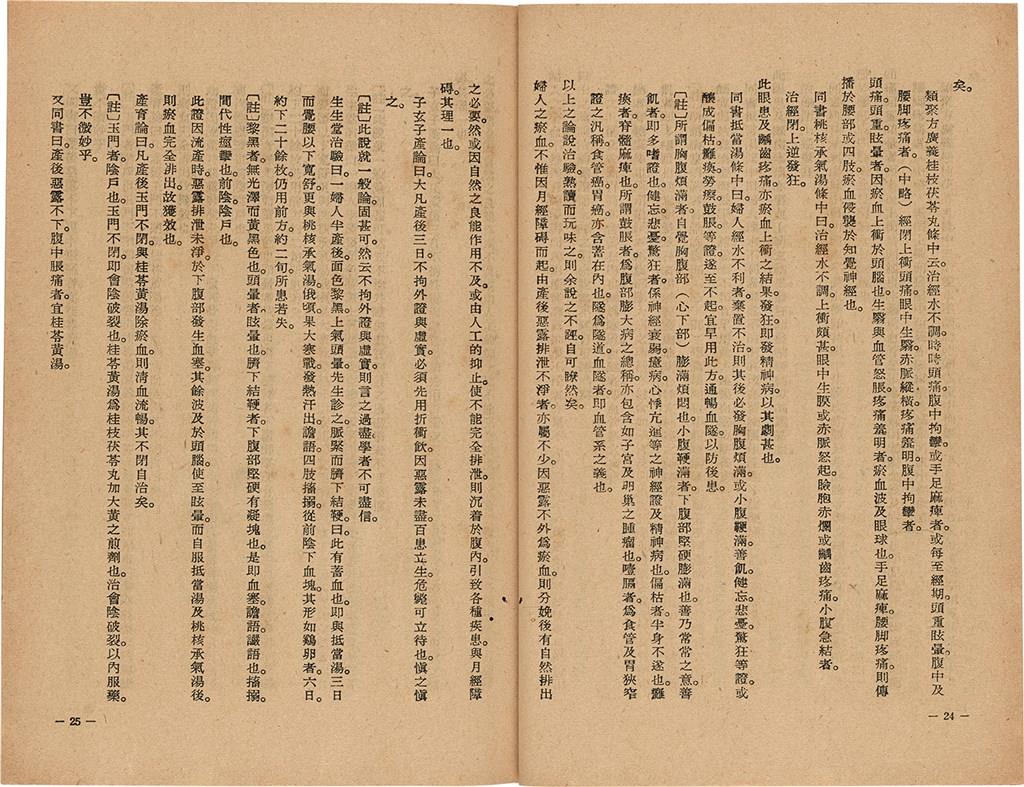 矣。
類聚方廣義桂枝茯苓丸條中云治經水不調。時時頭痛。腹中拘攣。或手足麻痺者。或每至經期。頭重眩暈。腹中及
腰脚疼痛者。（中略）經閉上衝頭痛。眼中生翳。赤脈縱橫。疼痛羞明。腹中拘攣者。
頭痛。頭重。眩暈者。因瘀血上衝於頭腦也。生翳與血管怒脹。疼痛羞明者。瘀血波及眼球也。手足麻痺。腰脚疼痛。則傳
播於腰部或四肢。瘀血侵襲於知覺神經也。
同書桃核承氣湯條中曰。治經水不調。上衝頗甚。眼中生膜。或赤脈怒起。瞼胞赤爛。或齲齒疼痛。小腹急結者。
治經閉上逆發狂。
此眼患及齲齒疼痛。亦瘀血上衝之結果。發狂即發精神病。以其劇甚也。
同書抵當湯條中曰。婦人經水不利者。棄置不治。則其後必發胸腹煩滿。或小腹鞕滿。善飢健忘。悲憂驚狂等證。或
釀成偏枯。癱瘓。勞瘵。鼓脹等證。遂至不起。宜早用此方。通暢血隧。以防後患。
〔註〕所謂胸腹煩滿者。自覺胸腹部（心下部）膨滿煩悶也。小腹鞕滿者。下腹部堅硬膨滿也。善乃常常之意。善
飢者。即多嗜證也。健忘。悲憂驚狂者。係神經衰弱。癔病。心悸亢進等之神經證及精神病也。偏枯者。半身不遂也。癱
瘓者。脊髓麻痺也。所謂鼓脹者。爲腹部膨大病之總稱。亦包含如子宮及卵巢之腫瘤也。噎膈者。爲食管及胃狹窄
證之汎稱。食管癌。胃癌。亦含蓄在內也。隧爲隧道。血隧者。即血管系之義也。
以上之論說治驗。熟讀而玩味之。則余說之不誣。自可瞭然矣。
婦人之瘀血。不惟因月經障碍而起。由產後惡露排泄不淨者。亦屬不少。因惡露不外爲瘀血。則分娩後有自然排出
— 24 —
之必要。然或因自然之良能作用不及。或由人工的抑止。使不能完全排泄。則沉着於腹內。引致各種疾患。與月經障
碍。其理一也。
子玄子產論曰。大凡產後三日。不拘外證與虛實。必須先用折衝飲。因惡露未盡。百患立生。危斃可立待也。愼之愼
之。
〔註〕此說就一般論固甚可。然云不拘外證與虛實。則言之過盡。學者不可盡信。
生生堂治驗曰。一婦人半產後。面色黎黑。上氣頭暈。先生診之。脈緊而臍下結鞕。曰。此有蓄血也。即與抵當湯。三日
而覺腰以下寬舒。更與桃核承氣湯。俄頃。果大寒戰。發熱汗出。譫語。四肢搐搦。從前陰下血塊。其形如鷄卵者。六日。
約下二十餘枚。仍用前方。約二旬。所患若失。
〔註〕黎黑者。無光澤而黃黑色也。頭暈者。眩暈也。臍下結鞕者。下腹部堅硬有凝塊也。是即血塞。譫語。讝語也。搐搦。
間代性痙攣也。前陰。陰戶也。
此證因流產時。惡露排泄未淨。於下腹部發生血塞。其餘波及於頭腦。使至眩暈。而自服抵當湯及桃核承氣湯後。
則瘀血完全排出。故獲效也。
產育論曰。凡產後玉門不閉。與桂苓黃湯。除瘀血。則清血流暢。其不閉自治矣。
〔註〕玉門者。陰戶也。玉門不閉。即會陰破裂也。桂苓黃湯爲桂枝茯苓丸加大黃之煎劑也。治會陰破裂以內服藥。
豈不微妙乎。
又同書曰。產後惡露不下。腹中脹痛者。宜桂苓黃湯。
— 25 —